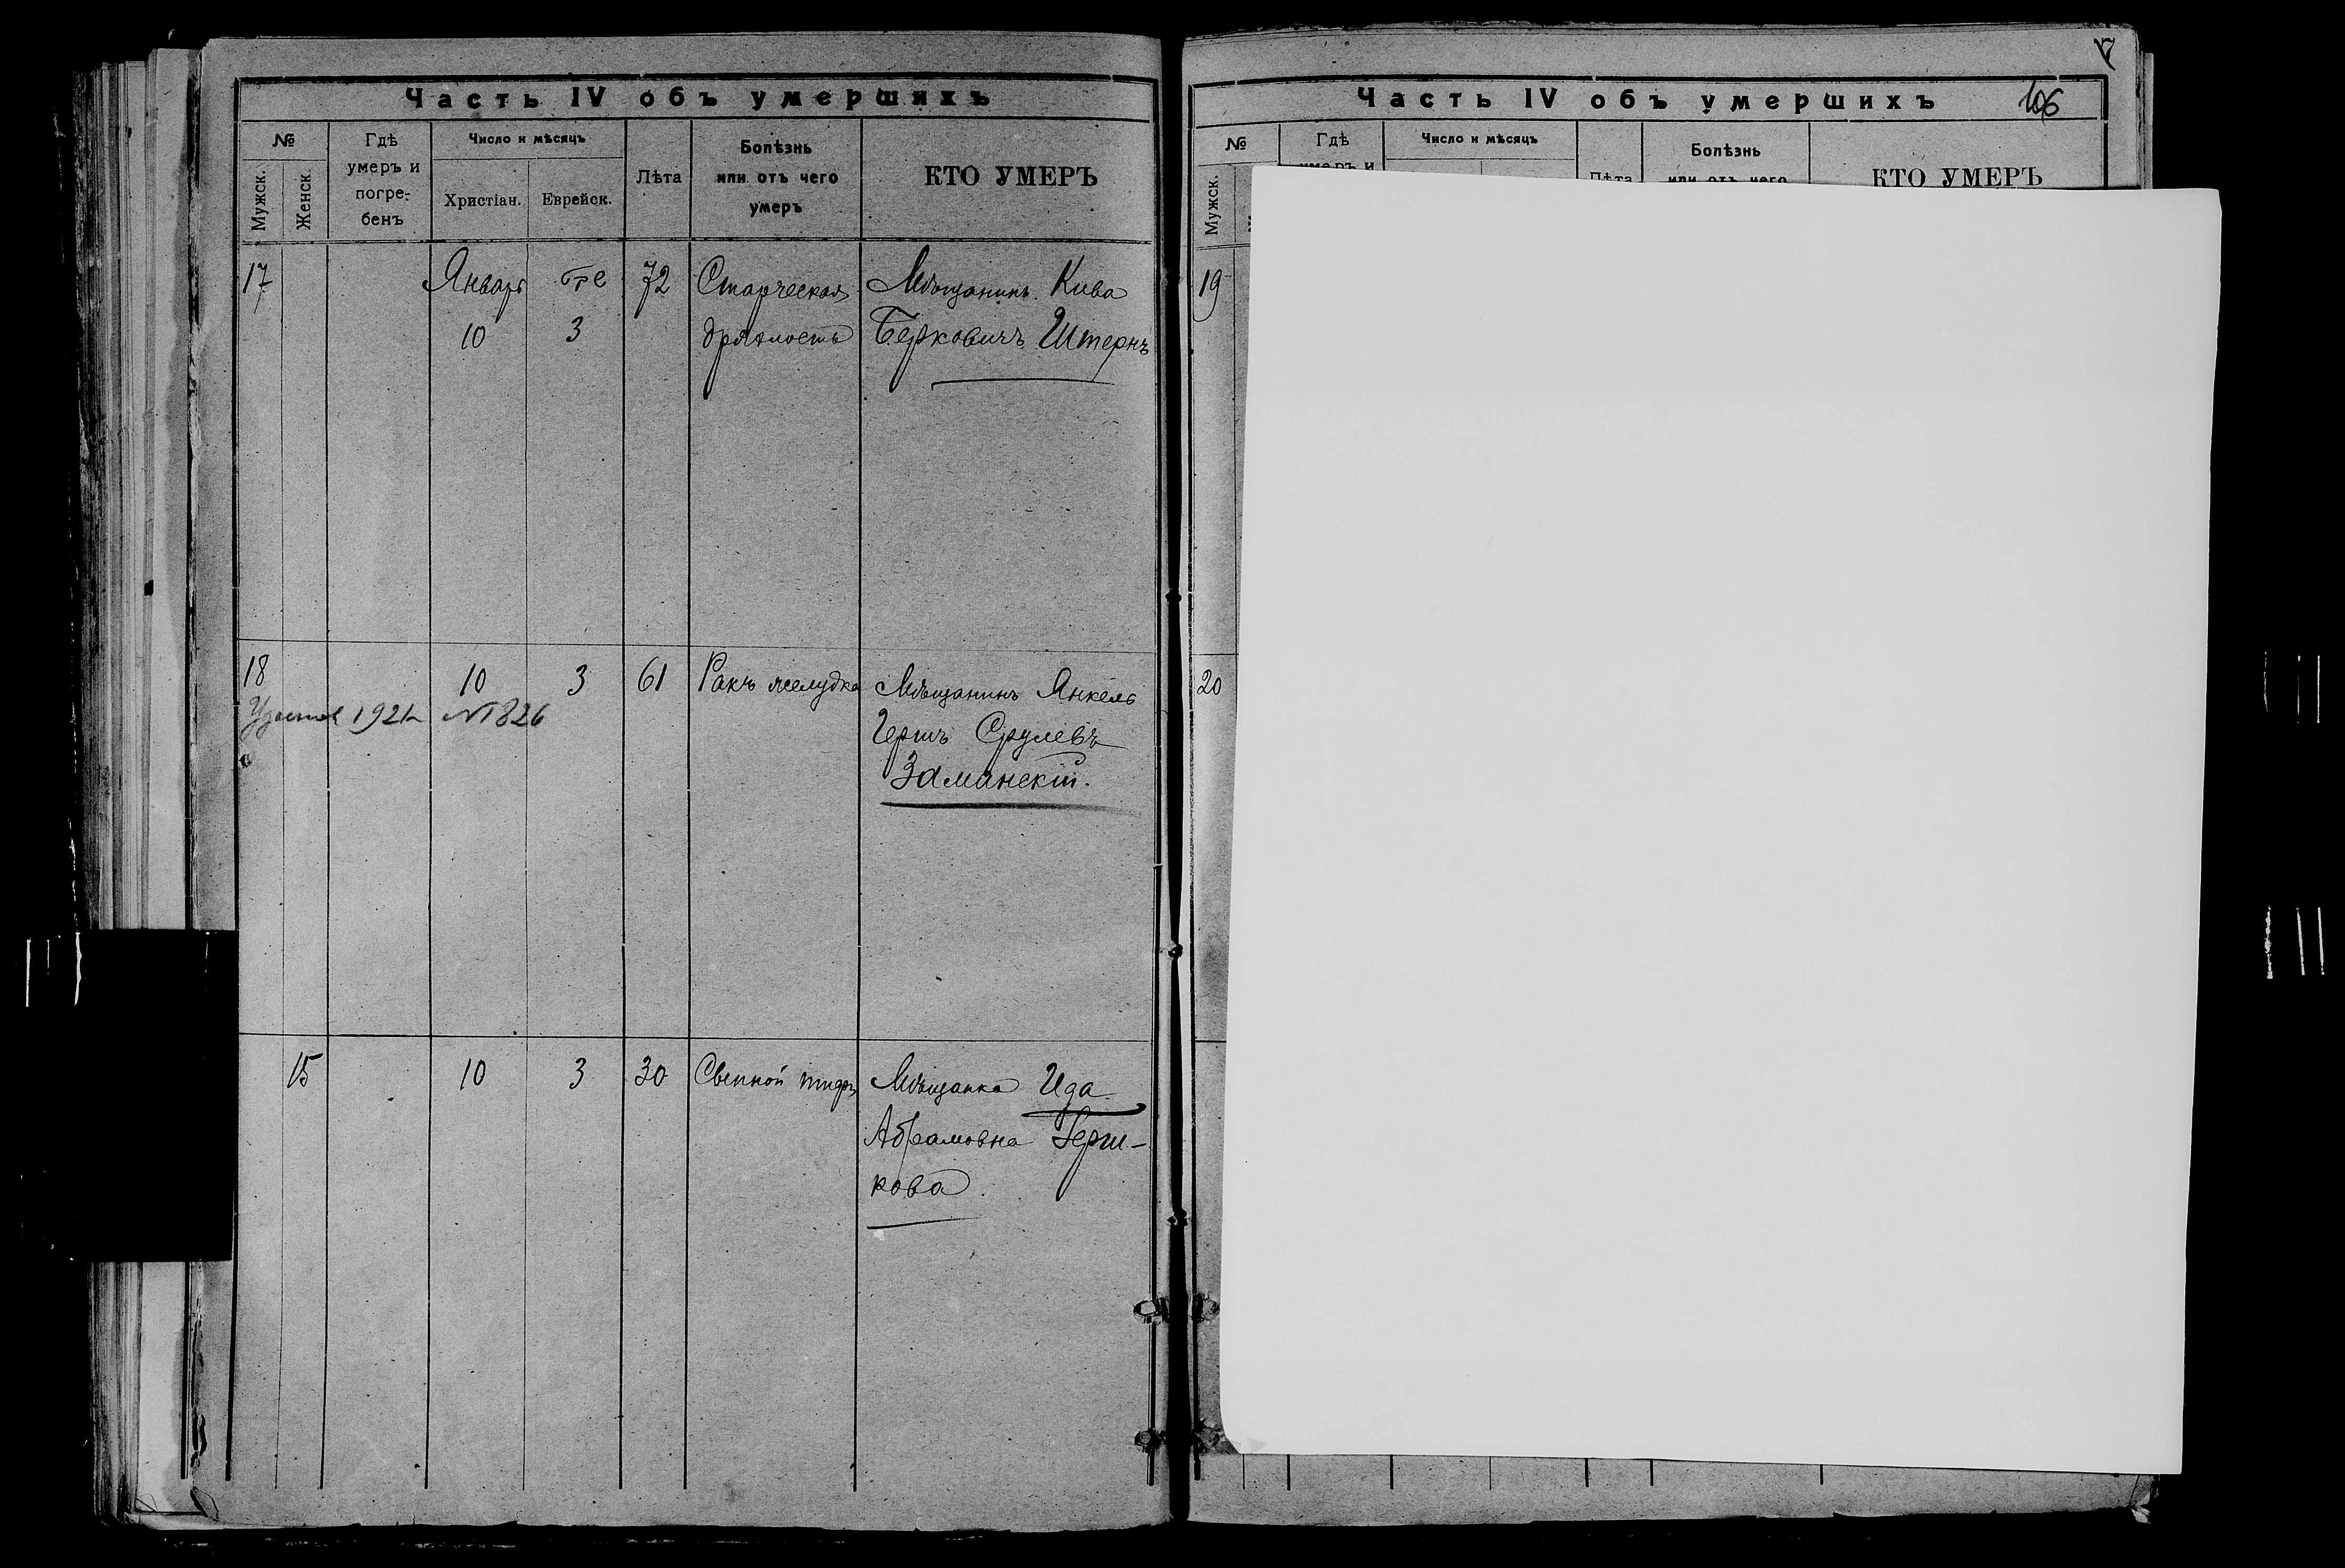 Часть IV объ умершихъ
№
Мужск.
Женск.
Гдѣ
умеръ и
погре-
бенъ
Число и мѣсяцъ
Христіан.
Еврейск.
Лѣта
Болѣзнь
или отъ чего
умеръ
КТО УМЕРЪ
17
Январь
10
3
72
Старческая
дряхлость
Мѣщанинъ Кива
Берковичъ Штернъ
18
10
3
61
Ракъ желудка
Мѣщанинъ Янкель
Гершъ Срулевъ
Заманскій.
1921 №1826
15
10
3
30
Сыпной тифъ
Мѣщанка Ида
Абрамовна Герш-
кова
Часть IV объ умершихъ
106
№
Мужск.
Гдѣ
умеръ и
Число и мѣсяцъ
Лѣта
Болѣзнь
или отъ чего
КТО УМЕРЪ
19
20